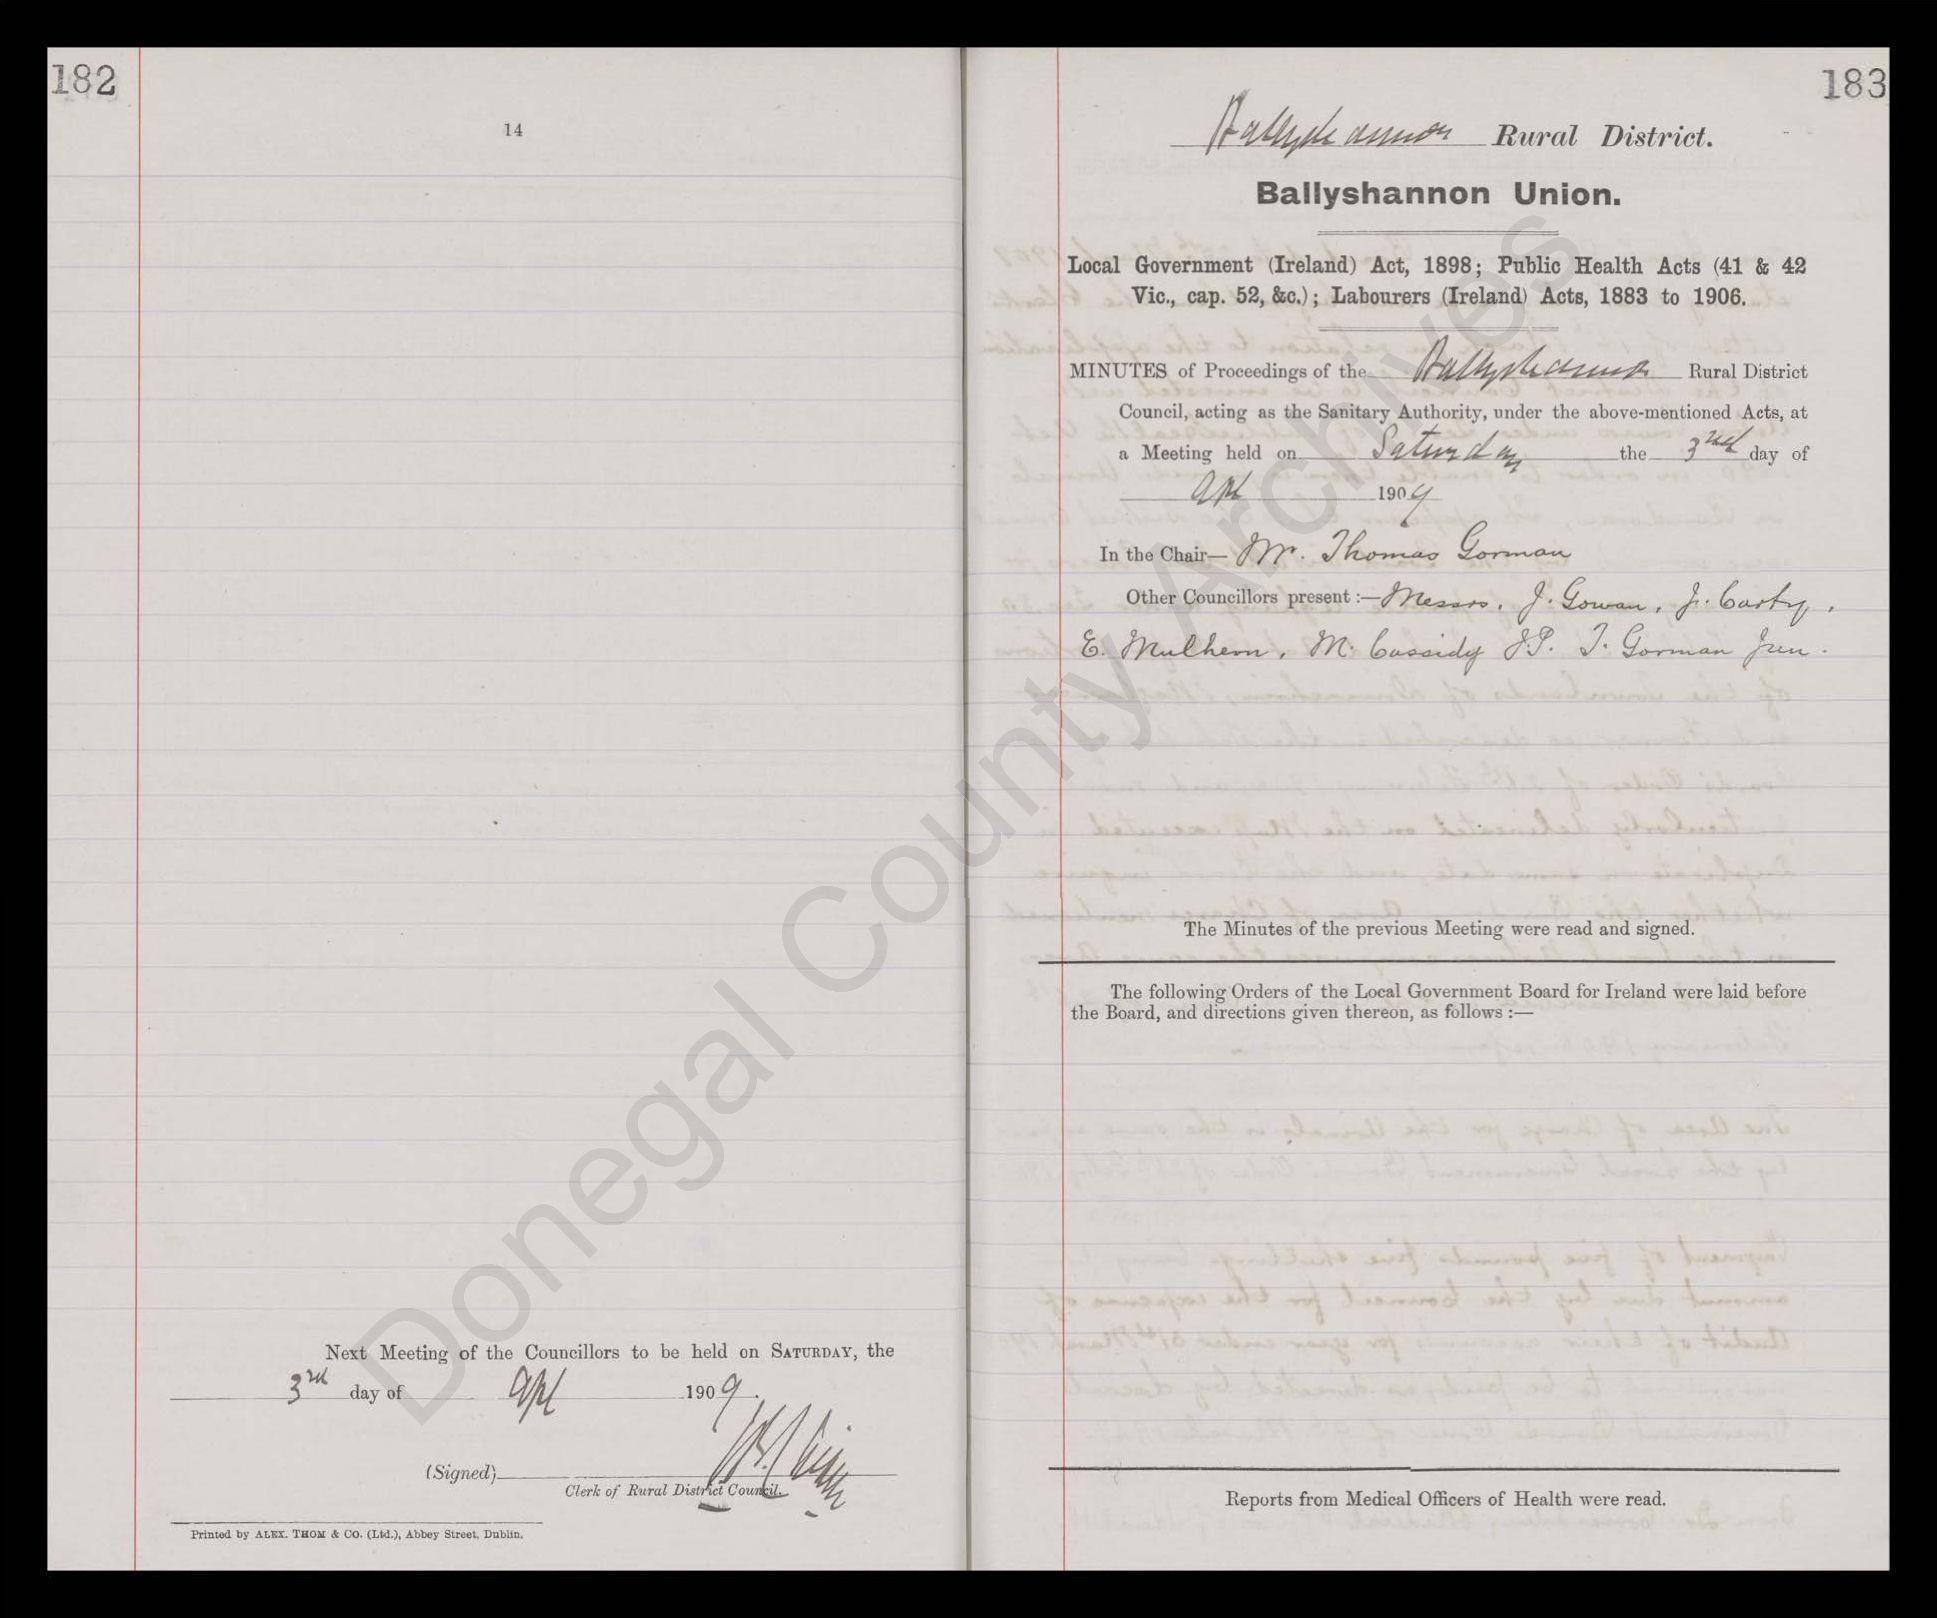 182
14
Next Meeting of the Councillors to be held on SATURDAY, the
3rd day of Apl 1909.
(Signed)
Clerk of Rural District Council.
Printed by ALEX. THOM & CO. (Ltd.), Abbey Street, Dublin.
183
Ballyshannon Rural District.
Ballyshannon Union.
Local Government (Ireland) Act, 1898; Public Health Acts (41 & 42
Vic., cap. 52, &c.); Labourers (Ireland) Acts, 1883 to 1906.
MINUTES of Proceedings of the Ballyshannon Rural District
Council, acting as the Sanitary Authority, under the above-mentioned Acts, at
a Meeting held on Saturday the 3rd day of
Apl 1909
In the Chair— Mr. Thomas Gorman
Other Councillors present :— Messrs. J. Gowan, J. Carty,
E. Mulhern, M. Cassidy J.P. T. Gorman Jun.
The Minutes of the previous Meeting were read and signed.
The following Orders of the Local Government Board for Ireland were laid before
the Board, and directions given thereon, as follows :—
Reports from Medical Officers of Health were read.
Donegal County Archives